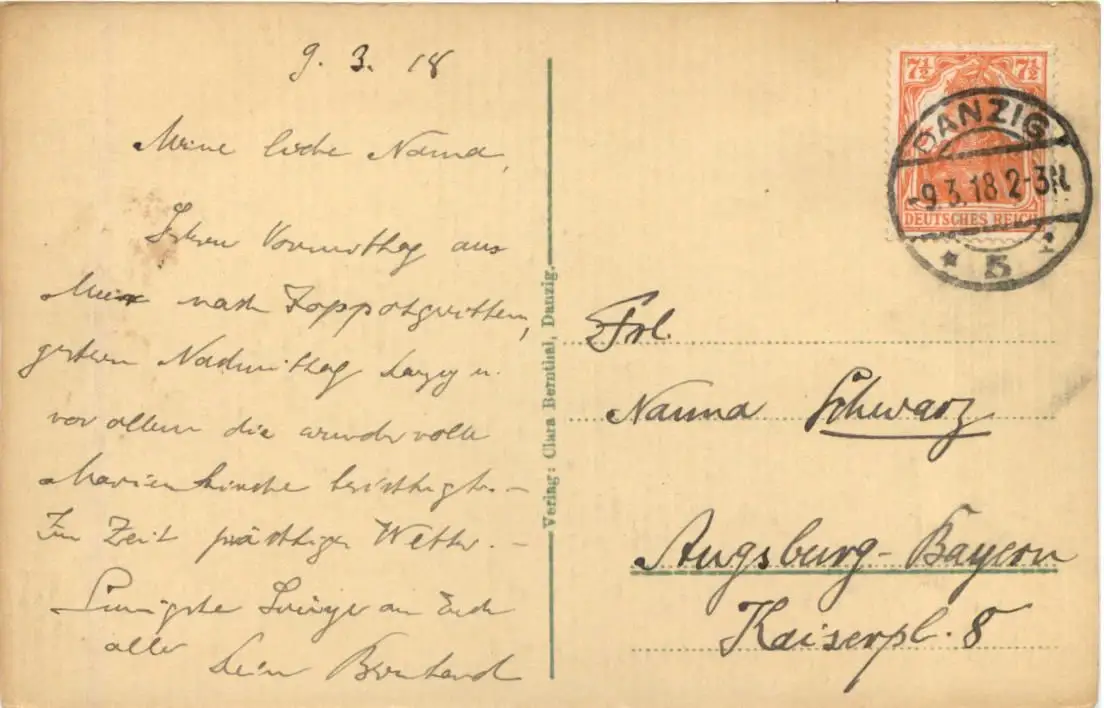 9. 3. 18
Meine liebe Nanna,
Vormittag aus
nach Zoppot geritten,
gestern Nachmittag Danzig u.
vor allem die wundervolle
Marienkirche besichtigt. –
Zur Zeit prächtiges Wetter. –
Innigste Grüsse an Euch
alle Dein Bernhard
Verlag: Clara Bernthal, Danzig.
7½ 7½
DEUTSCHES REICH
DANZIG
-9.3.18 2-3N.
* 5
Frl.
Nanna Schwarz
Augsburg - Bayern
Kaiserpl. 8